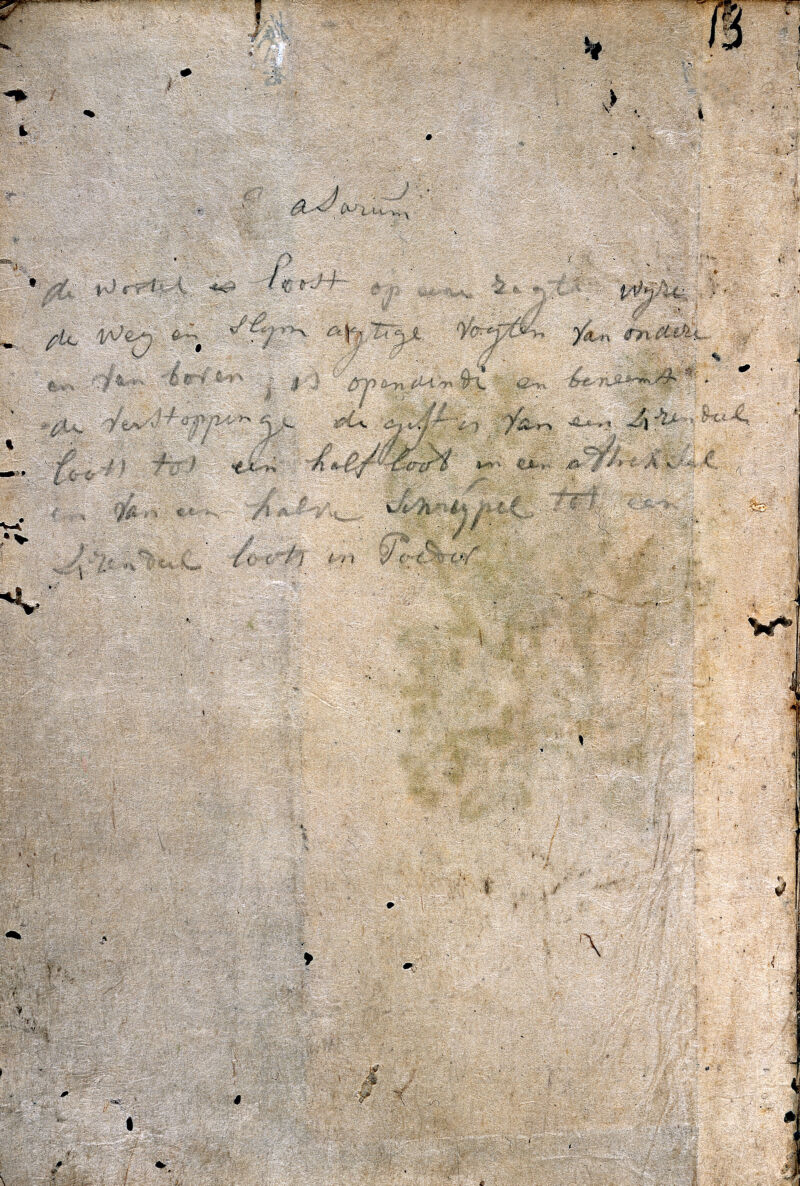 13
asarum
de wortel loost op een zagte wyze
de weg en slym agtige vogten van onder
en van boven, is openende en beneemt
de verstoppinge de gift is van een vierendeel
loots tot een half loot in een aftreksel
en van een halve Schrupel tot een
vierendeel loots in Poedor